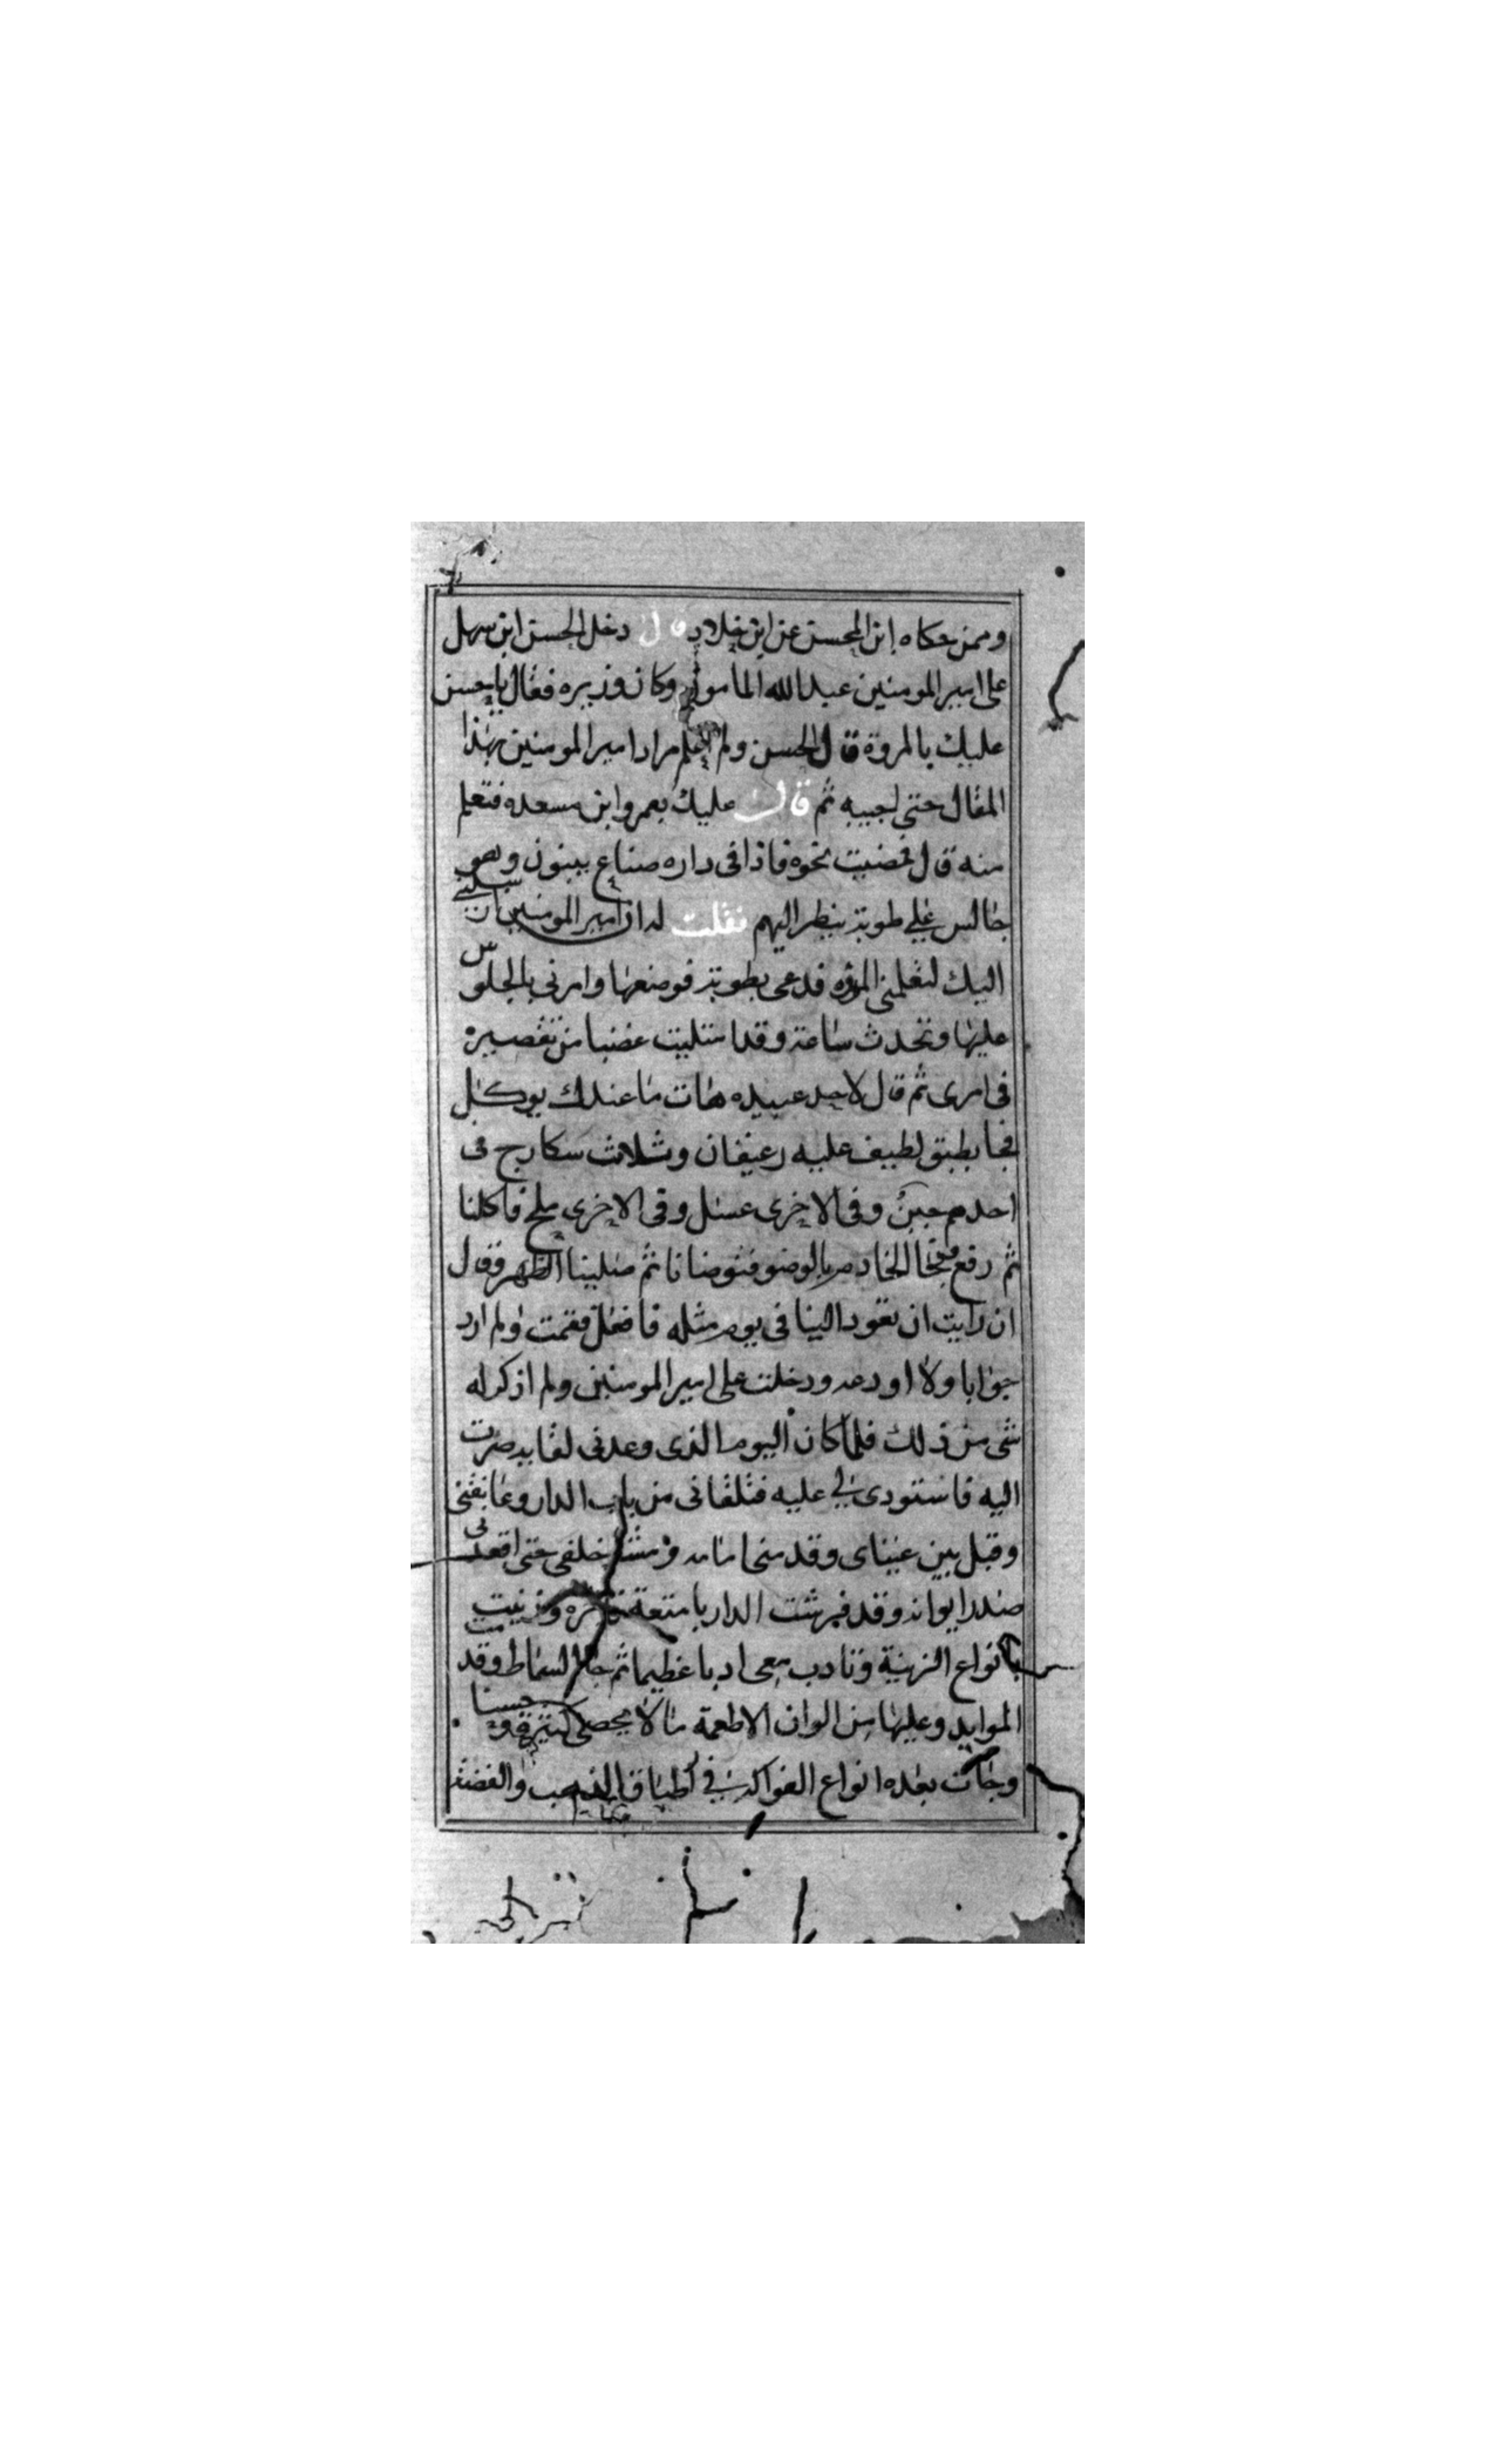 وممن حكاه ابن المحسن عن ابن خلاد قال دخل الحسن ابن سهل
على امير المومنين عبد الله المامون وكان وزيره فقال ياحسن
عليك بالمروة قال الحسن ولم اعلم مراد امير المومنين بهذا
المقال حتى اجيبه ثم قال عليك بعمرو ابن مسعده فتعلم
منه قال فمضيت نحوه فاذا فى داره صناع يبنون وهو
جالس على طوبة ينظر اليهم فقلت له ان امير المومنين
اليك لتعلمنى المروه فدعى بطوبة فوضعها وامرنى بالجلوس
عليها وتحدث ساعة وقد امتليت غضبا من تقصيره
فى امرى ثم قال لاحد عبيده هات ما عندك يوكل
فجا بطبق لطيف عليه رغيفان وثلاث سكارج فى
احدهم جبن وفى الاخرى عسل وفى الاخرى ملح فاكلنا
ثم رفع فجا الخادم بالوضو فتوضانا ثم صلينا الظهر وقال
ان رايت ان تعود الينا فى يوم مثله فافعل فقمت ولم ارد
جوابا ولا اودعه ودخلت على امير المومنين ولم اذكر له
شى من ذلك فلما كان اليوم الذى وعدنى لقايه صرت
اليه فاستودى لى عليه فتلقانى من باب الدار وعانقنى
وقبل بين عيناى وقدمنى امامه ومشا خلفى حتى اقعدنى
صدر ايوانه وقد فرشت الدار بامتعة فاخره وزنيت
بانواع الزينة وتادب معى ادبا عظيما ثم جا السماط وقدمت
الموايد وعليها من الوان الاطعمة ما لا يحصى كثرة وحسنا
وجات بعده انواع الفواكه فى اطباق الذهب والفضة